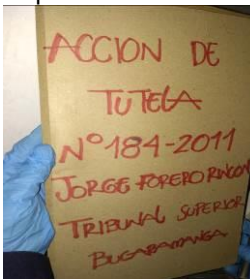 ACCION DE
TUTELA
Nº184-2011
JORGE FORERO RINCON
TRIBUNAL SUPERIOR
BUCARAMANGA